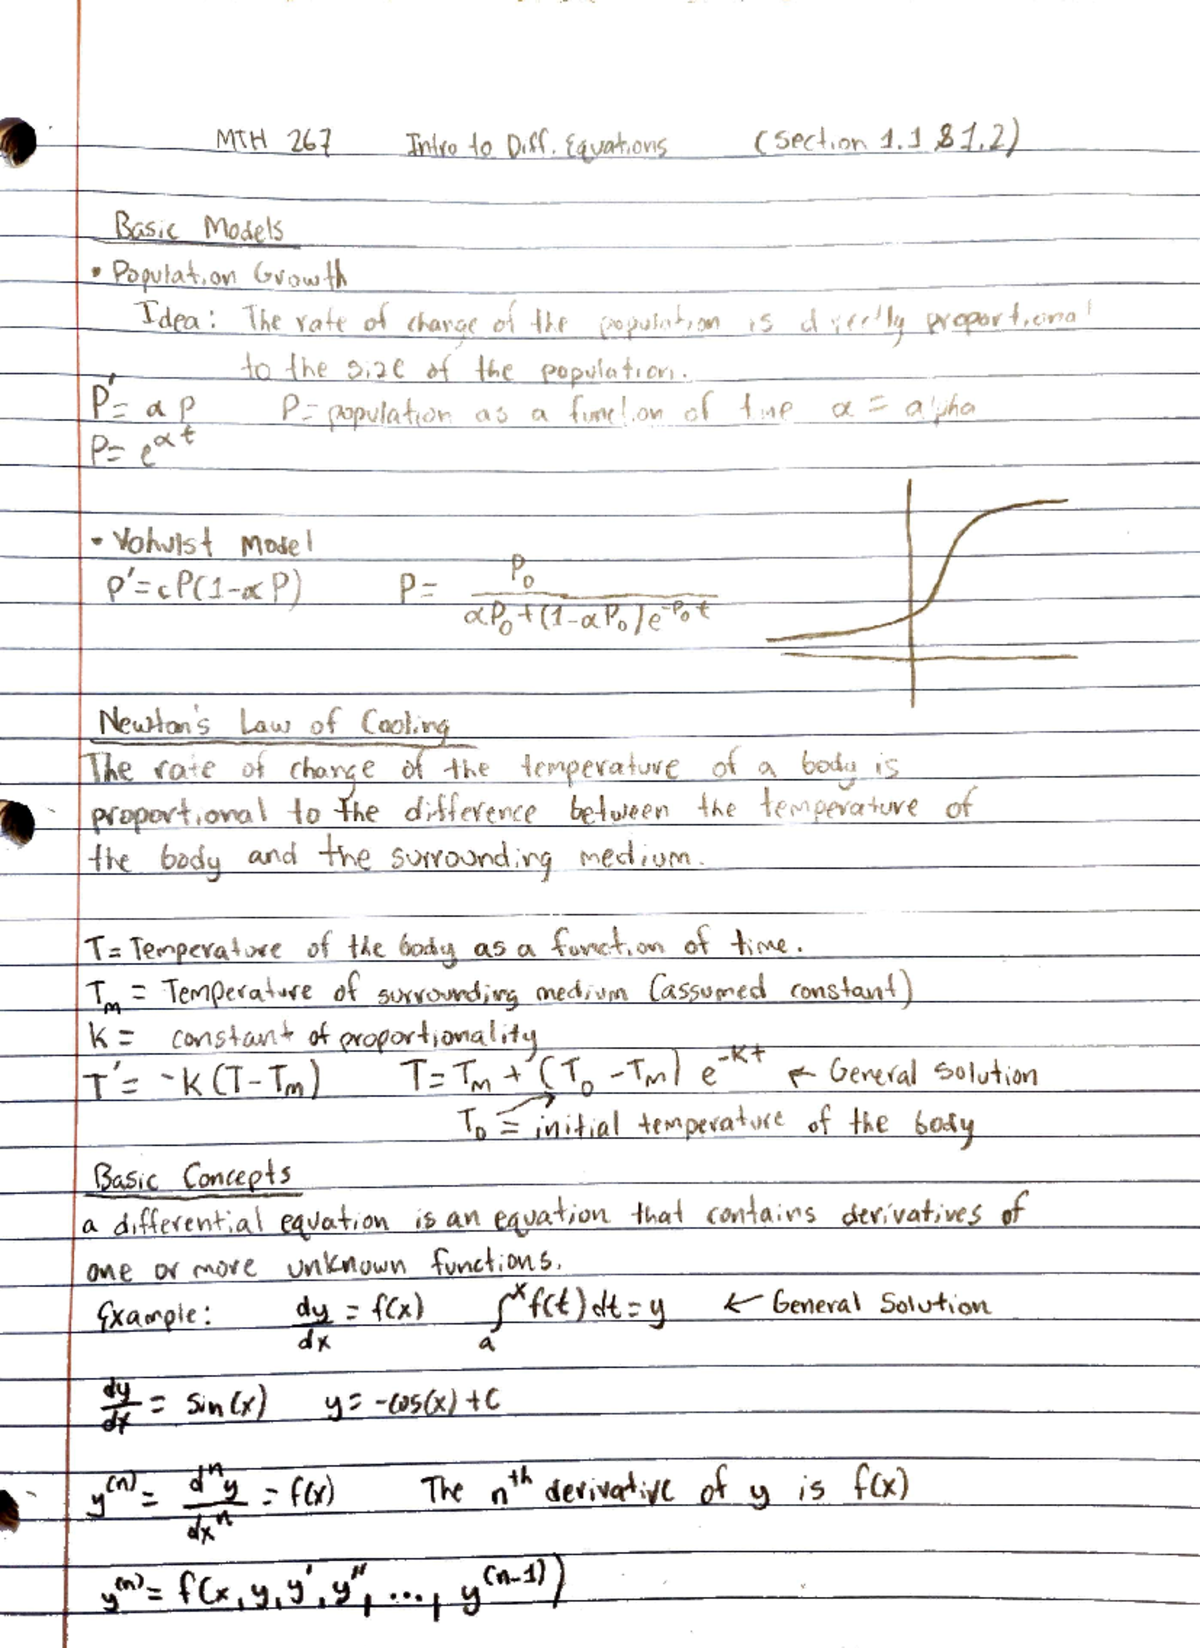 MTH 267 Intro to Diff. Equations (Section 1.1 & 1.2)
Basic Models
• Population Growth
Idea: The rate of change of the population is directly proportional
to the size of the population.
P' = αP P = population as a function of time α = alpha
P = e^αt
• Vohulst Model
P' = cP(1-αP) P = P₀ / (αP₀ + (1-αP₀)e^-P₀t)
Newton's Law of Cooling
The rate of change of the temperature of a body is
proportional to the difference between the temperature of
the body and the surrounding medium.
T = Temperature of the body as a function of time.
Tₘ = Temperature of surrounding medium (assumed constant)
K = constant of proportionality
T' = -K(T-Tₘ) T = Tₘ + (T₀ - Tₘ) e^-Kt ← General solution
T₀ = initial temperature of the body
Basic Concepts
a differential equation is an equation that contains derivatives of
one or more unknown functions.
Example: dy/dx = f(x) ∫ₐˣ f(t) dt = y ← General Solution
dy/dx = sin(x) y = -cos(x) + C
y⁽ⁿ⁾ = dⁿy/dxⁿ = f(x) The nᵗʰ derivative of y is f(x)
y⁽ⁿ⁾ = f(x, y, y', y'', ..., y⁽ⁿ⁻¹⁾)